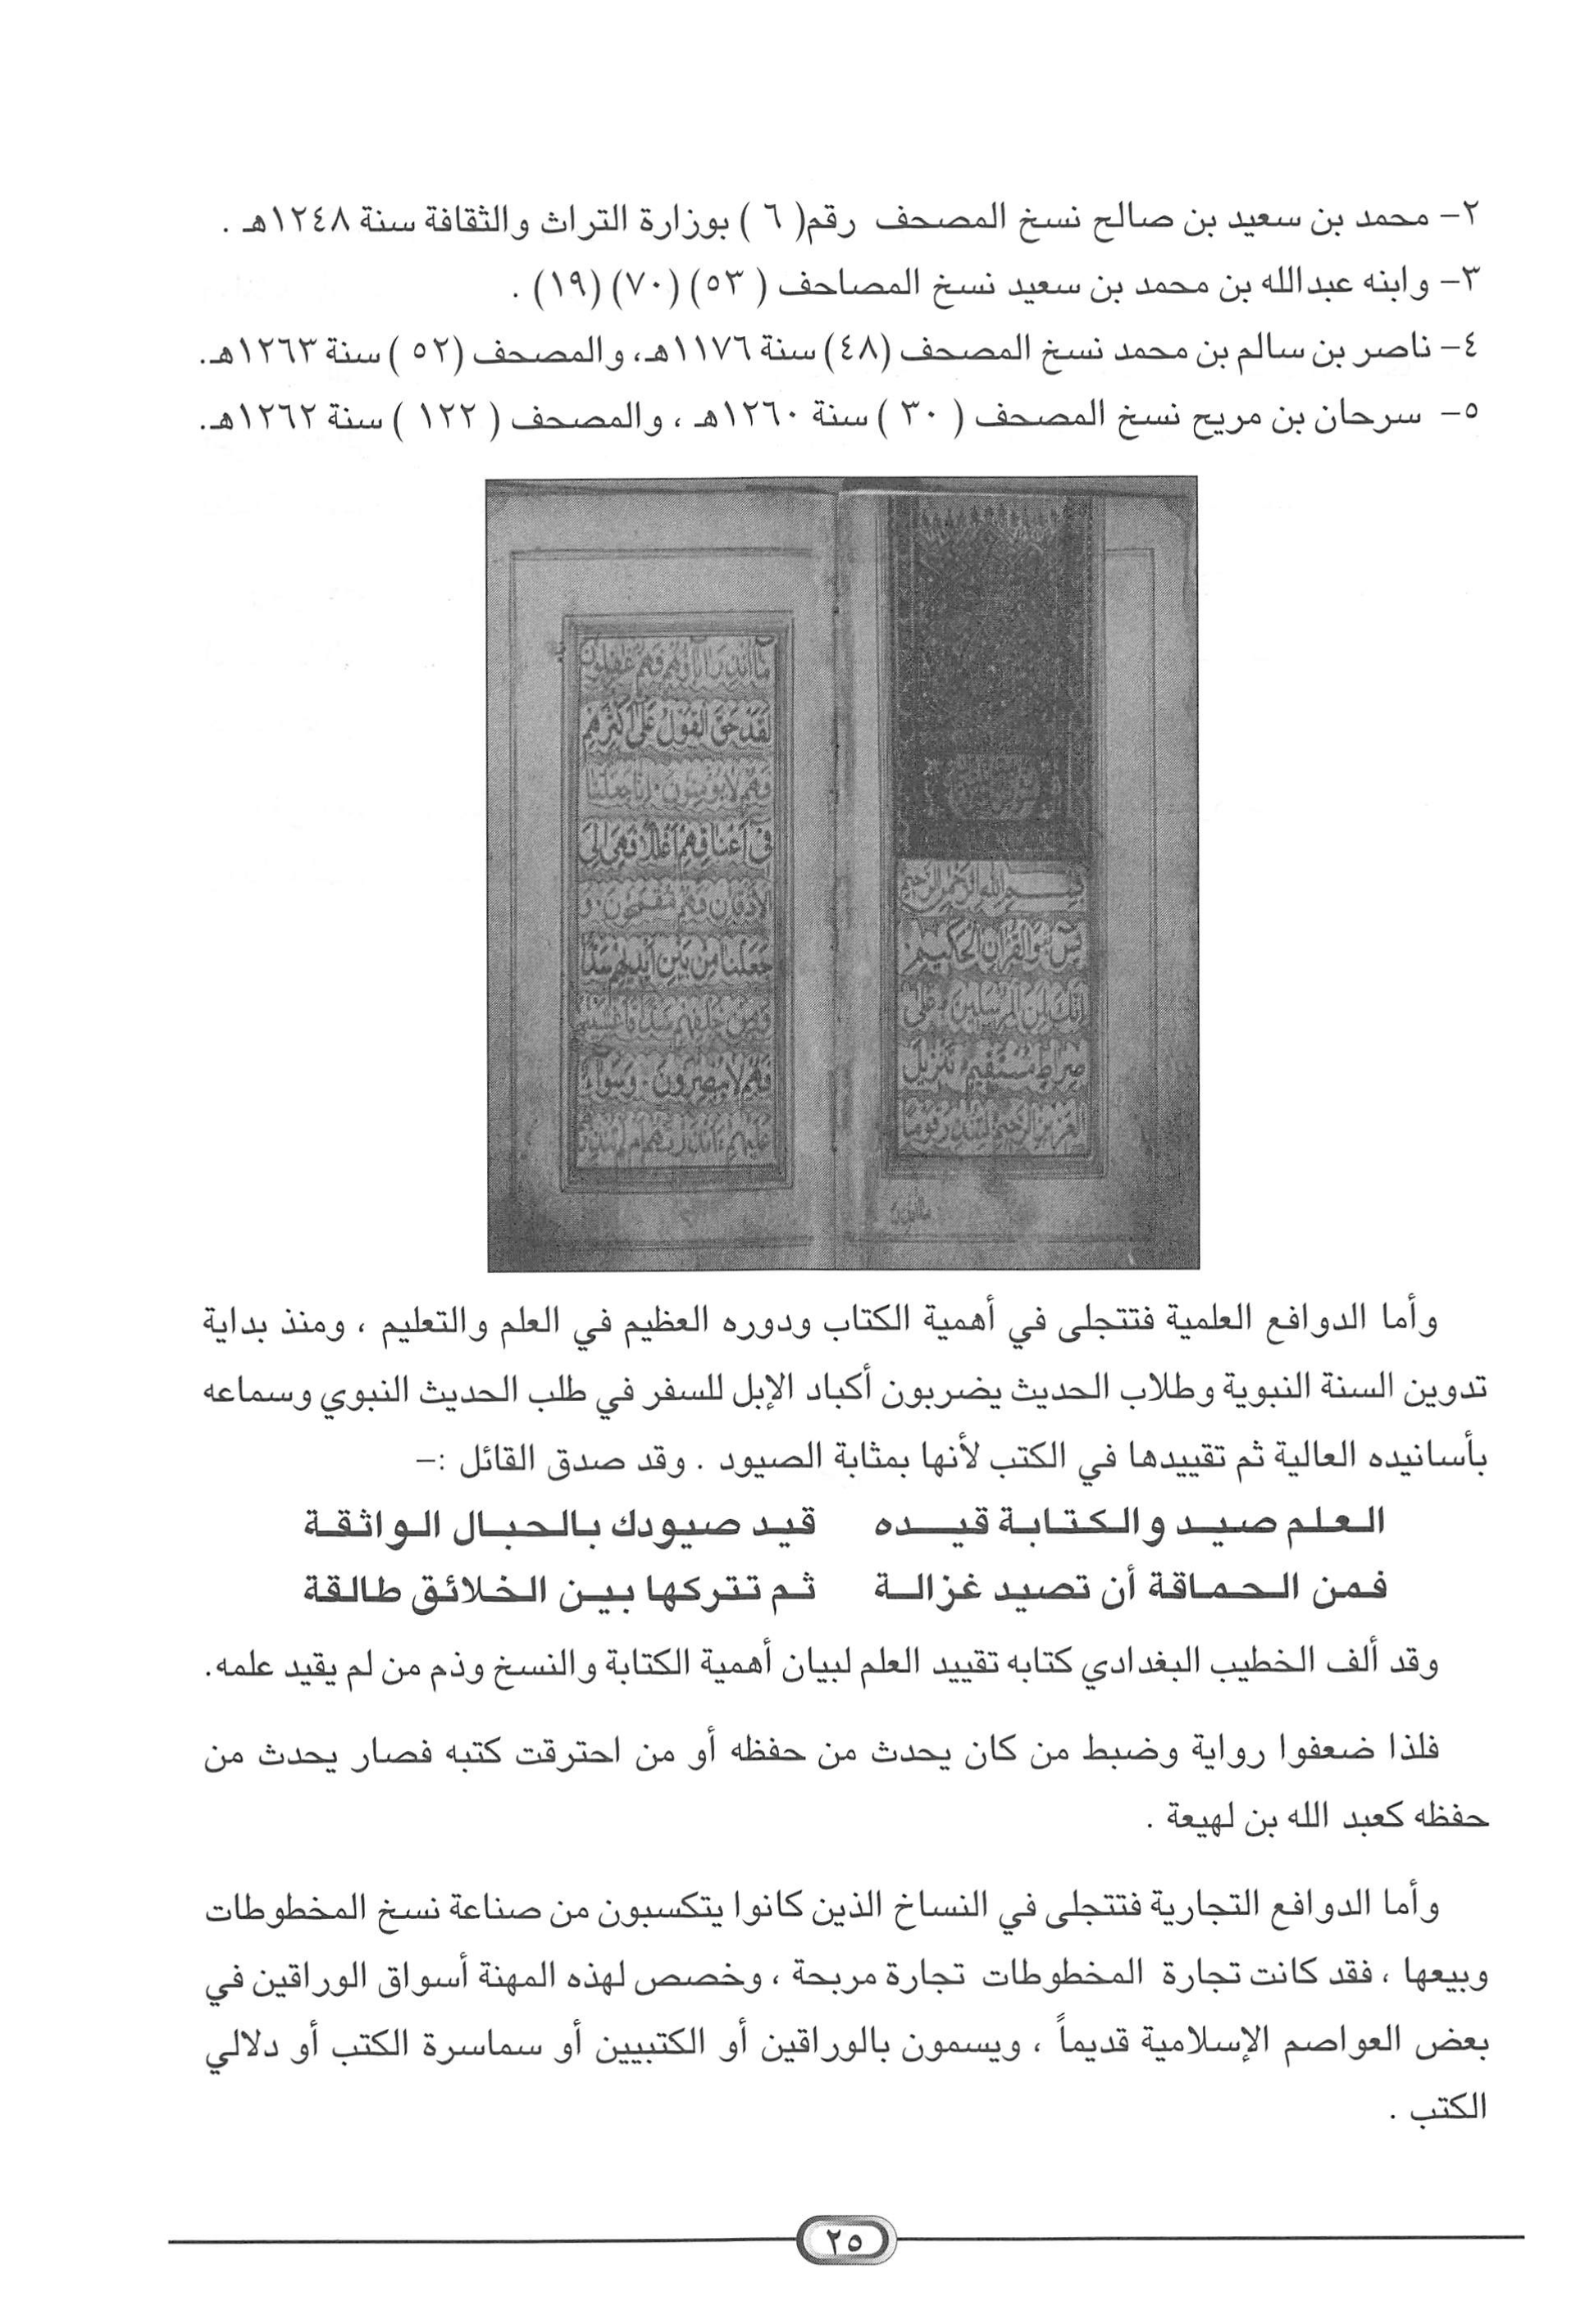 ٢- محمد بن سعيد بن صالح نسخ المصحف رقم( ٦ ) بوزارة التراث والثقافة سنة ١٢٤٨هـ .
٣- وابنه عبدالله بن محمد بن سعيد نسخ المصاحف ( ٥٣) (٧٠) (١٩) .
٤- ناصر بن سالم بن محمد نسخ المصحف (٤٨) سنة ١١٧٦هـ، والمصحف (٥٢ ) سنة ١٢٦٣هـ.
٥- سرحان بن مريح نسخ المصحف ( ٣٠ ) سنة ١٢٦٠هـ ، والمصحف ( ١٢٢ ) سنة ١٢٦٢هـ.
بسم الله الرحمن الرحيم
يس والقران الحكيم
انك لمن المرسلين على
صراط مستقيم تنزيل
العزيز الرحيم لتنذر قوما
ما انذر اباؤهم فهم غفلون
لقد حق القول على اكثرهم
فهم لا يؤمنون انا جعلنا
في اعناقهم اغللا فهي الى
الاذقان فهم مقمحون و
جعلنا من بين ايديهم سدا
ومن خلفهم سدا فاغشينهم
فهم لا يبصرون وسواء
عليهم ءانذرتهم ام لم تنذر
وأما الدوافع العلمية فتتجلى في أهمية الكتاب ودوره العظيم في العلم والتعليم ، ومنذ بداية
تدوين السنة النبوية وطلاب الحديث يضربون أكباد الإبل للسفر في طلب الحديث النبوي وسماعه
بأسانيده العالية ثم تقييدها في الكتب لأنها بمثابة الصيود . وقد صدق القائل :-
العلم صيد والكتابة قيده قيد صيودك بالحبال الواثقة
فمن الحماقة أن تصيد غزالة ثم تتركها بين الخلائق طالقة
وقد ألف الخطيب البغدادي كتابه تقييد العلم لبيان أهمية الكتابة والنسخ وذم من لم يقيد علمه.
فلذا ضعفوا رواية وضبط من كان يحدث من حفظه أو من احترقت كتبه فصار يحدث من
حفظه كعبد الله بن لهيعة .
وأما الدوافع التجارية فتتجلى في النساخ الذين كانوا يتكسبون من صناعة نسخ المخطوطات
وبيعها ، فقد كانت تجارة المخطوطات تجارة مربحة ، وخصص لهذه المهنة أسواق الوراقين في
بعض العواصم الإسلامية قديماً ، ويسمون بالوراقين أو الكتبيين أو سماسرة الكتب أو دلالي
الكتب .
٢٥